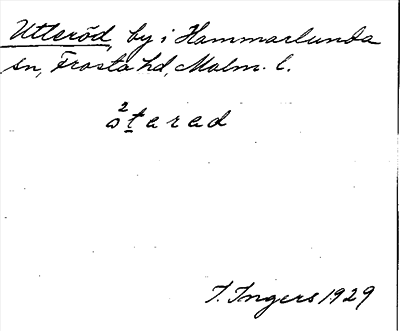 Utteröd, by i Hammarlunda
sn, Frosta hd, Malm. l.
²åtarad
I. Ingers 1929